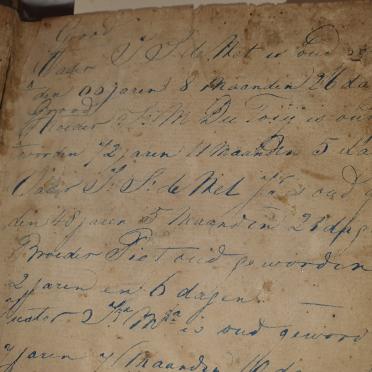 Groot
Vader J S de Wet is oud
den jaren 8 maanden 26 da
Groot
Moeder M Du Toit is oud
worden 72 jaren 11 Maanden 5 da
Vader J. S. de Wet is oud g
den 48 jaren 5 Maanden 26 dag
Broeder Piet oud geworden
2 jaren en 6 dagen
uster is oud geword
jaren maanden 16 da